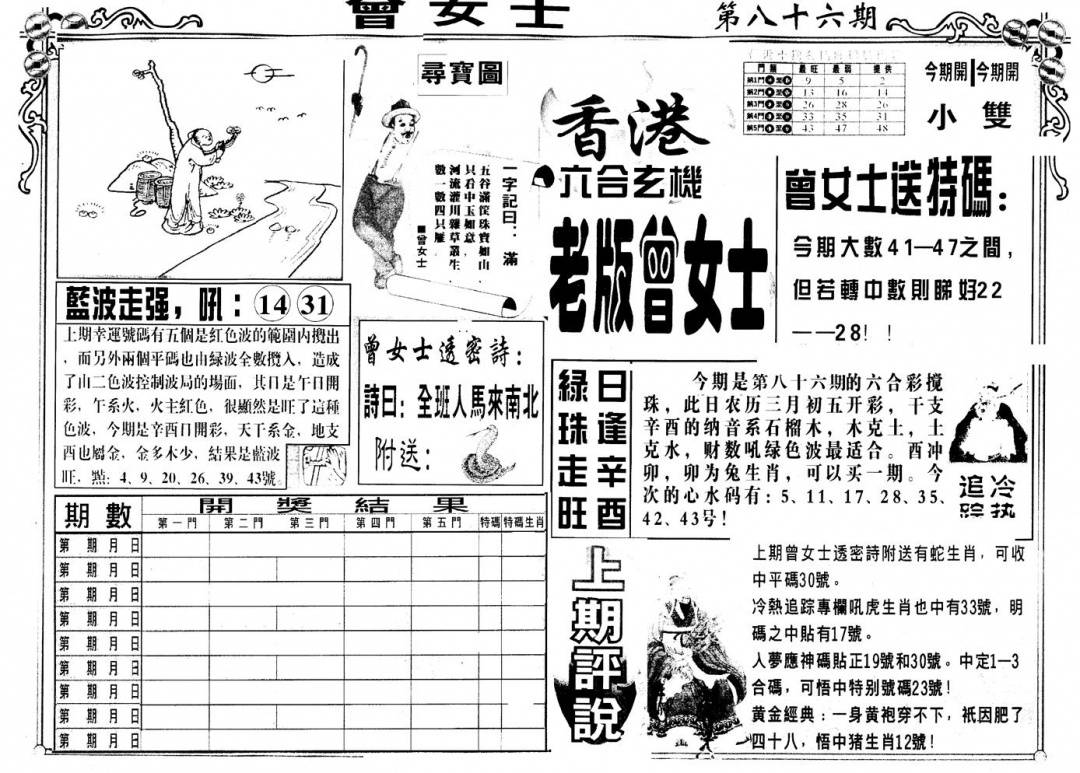 曾女士
第八十六期
尋寶圖
一字記曰：滿
五谷滿筐珠寶如山
只看中玉如意
河流灌川雜草叢生
數一數四只雁
■曾女士
香港
六合玄機
老版曾女士
門類 最旺 最弱 提供
第1門 9 5 2
第2門 13 16 14
第3門 26 28 26
第4門 33 35 31
第5門 43 47 48
今期開 今期開
小 雙
曾女士送特碼：
今期大數41—47之間，
但若轉中數則睇好22
——28！！
藍波走强，吼：14 31
上期幸運號碼有五個是红色波的範圍内攪出
，而另外兩個平碼也由緑波全數攬入，造成
了由二色波控制波局的場面，其日是午日開
彩，午系火，火主红色，很顯然是旺了這種
色波，今期是辛酉日開彩，天干系金，地支
酉也屬金，金多木少，結果是藍波
旺，點：4、9、20、26、39、43號。
曾女士透密詩：
詩曰：全班人馬來南北
附送：
綠珠走旺
日逢辛酉
今期是第八十六期的六合彩搅
珠，此日农历三月初五开彩，干支
辛酉的纳音系石榴木，木克土，土
克水，财数吼绿色波最适合。酉冲
卯，卯为兔生肖，可以买一期。今
次的心水码有：5、11、17、28、35、
42、43号！
冷热
追踪
期數 開獎結果
第一門 第二門 第三門 第四門 第五門 特碼 特碼生肖
第 期 月 日
第 期 月 日
第 期 月 日
第 期 月 日
第 期 月 日
第 期 月 日
第 期 月 日
第 期 月 日
第 期 月 日
上期評說
上期曾女士透密詩附送有蛇生肖，可收
中平碼30號。
冷熱追踪專欄吼虎生肖也中有33號，明
碼之中貼有17號。
人夢應神碼貼正19號和30號。中定1—3
合碼，可悟中特别號碼23號！
黄金經典：一身黄袍穿不下，衹因肥了
四十八，悟中猪生肖12號！